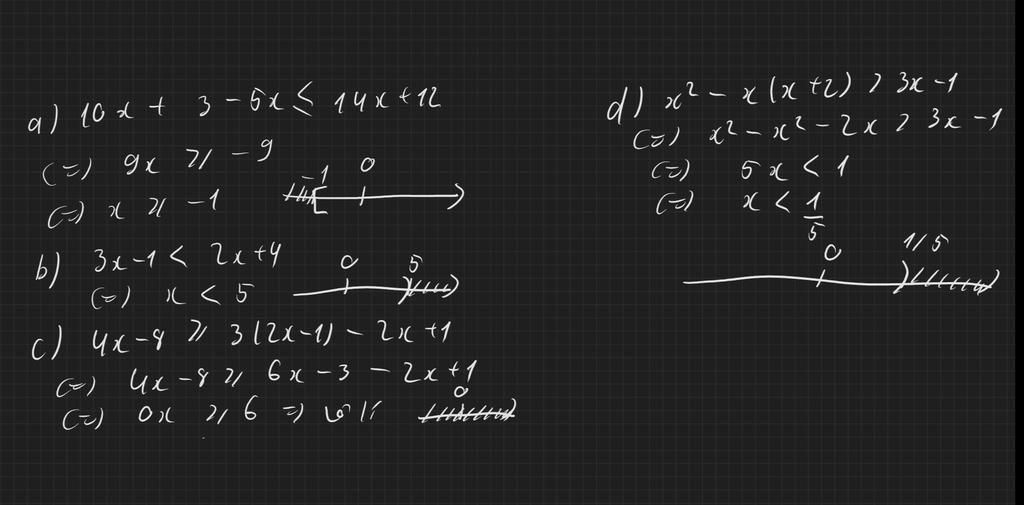 a) 10x + 3 - 5x ≤ 14x+12
(=) 9x ≥ -9
(=) x ≥ -1
-1 0
b) 3x-1 < 2x+4
(=) x < 5
0 5
c) 4x-8 ≥ 3(2x-1) - 2x+1
(=) 4x-8 ≥ 6x-3 - 2x+1
(=) 0x ≥ 6 => vô lí
0
d) x² - x(x+2) > 3x-1
(=) x² - x² - 2x > 3x-1
(=) 5x < 1
(=) x < 1/5
0 1/5